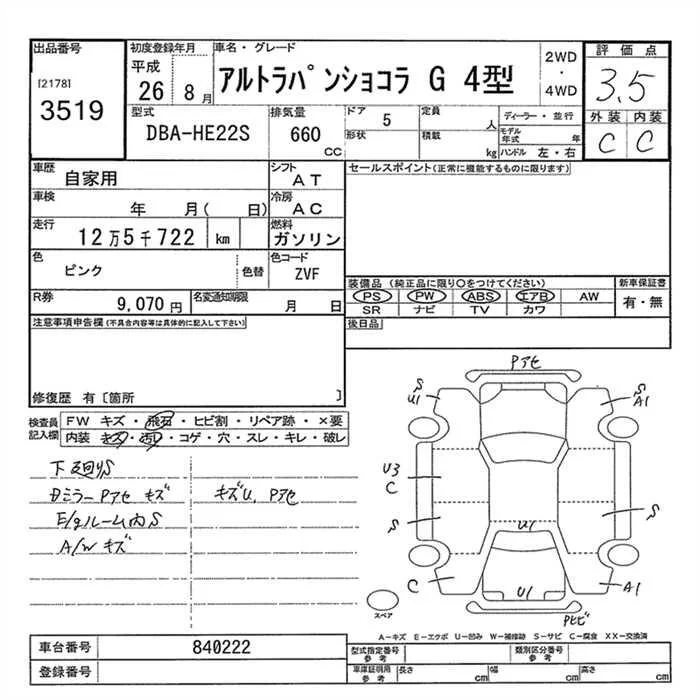 出品番号
[2178]
3519
初度登録年月
平成
26 8月
車名・グレード
アルトラパンショコラ G 4型
2WD
・
4WD
評価点
3.5
外装 内装
C C
型式
DBA-HE22S
排気量
660
CC
ドア 5
形状
定員 人
積載 kg
ディーラー・並行
モデル年式 年
ハンドル 左・右
車歴
自家用
シフト
AT
車検
年 月( 日)
冷房
AC
走行
12万5千722 km
燃料
ガソリン
色
ピンク
色替
色コード
ZVF
R券
9,070円
名変通知期限
月 日
セールスポイント(正常に機能するものに限ります)
装備品 (純正品に限り○をつけてください)
PS PW ABS エアB AW
SR ナビ TV カワ
新車保証書
有・無
後日品
注意事項申告欄(不具合内容等は具体的に記入して下さい)
修復歴 有〔箇所 〕
検査員記入欄
FW キズ・飛石・ヒビ割・リペア跡・×要
内装 キズ・汚レ・コゲ・穴・スレ・キレ・破レ
下廻りS
Dミラー Pアセ キズ
キズU, Pアセ
E/gルーム内S
A/W キズ
Pアセ
S
U1
S
A1
U3
C
S
S
U1
C
U1
A1
Pヒビ
スペア
A－キズ E－エクボ U－凹み W－補修跡 S－サビ C－腐食 XX－交換済
車台番号
840222
登録番号
型式指定番号
参考
類別区分番号
参考
車庫証明用
参考
長さ cm
幅 cm
高さ cm